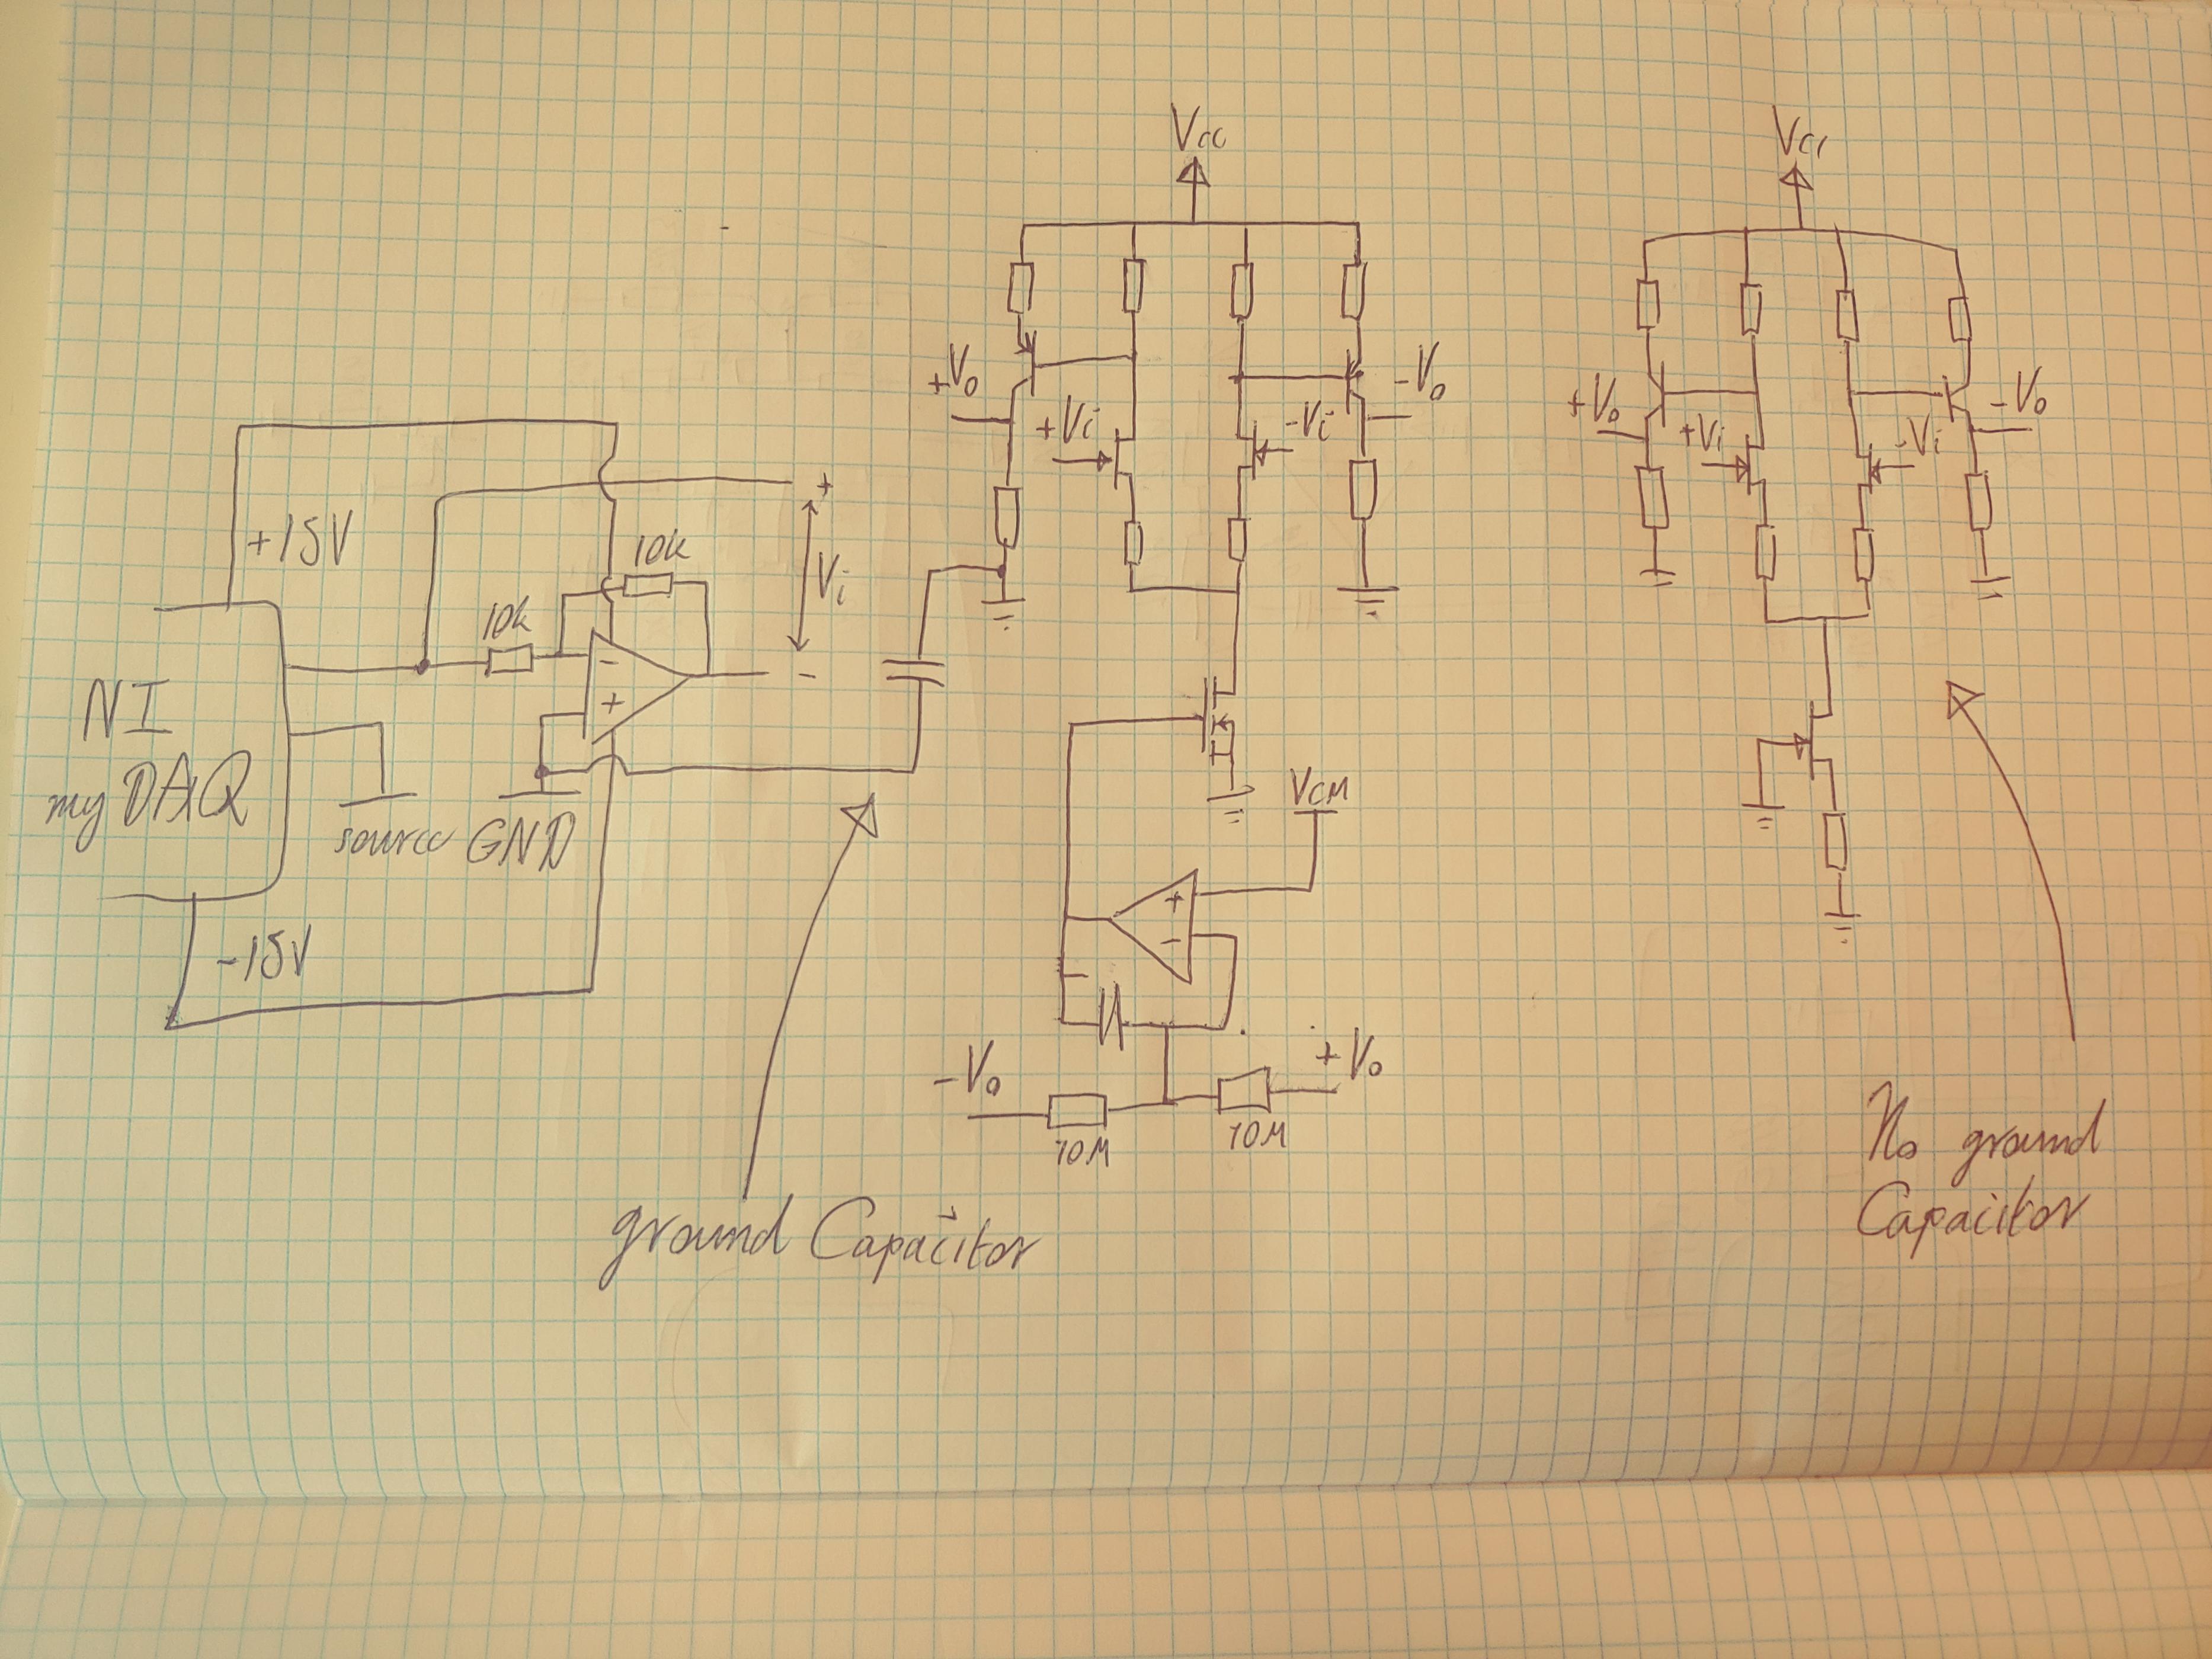 Vcc
Vcc
+Vo
+Vi
-Vi
-Vo
+Vo
+Vi
-Vi
-Vo
+
+15V
10k
Vi
10k
-
-
+
NI
my DAQ
source GND
VCM
+
-
-15V
-Vo
+Vo
10M
10M
ground Capacitor
No ground
Capacitor